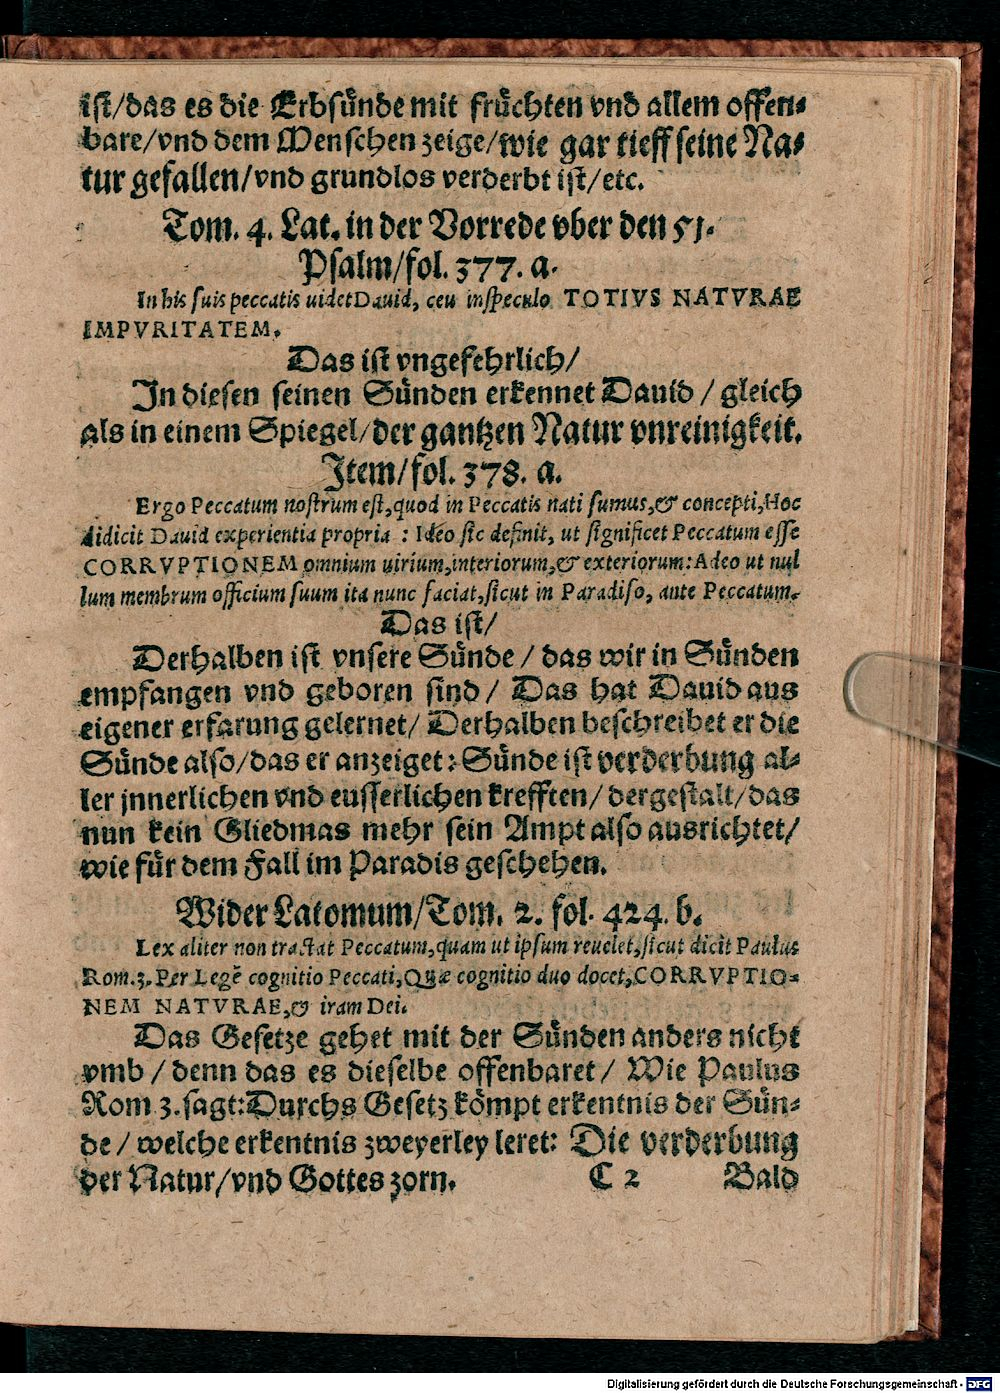 ist/das es die Erbsünde mit früchten vnd allem offen-
bare/vnd dem Menschen zeige/wie gar tieff seine Na-
tur gefallen/vnd grundlos verderbt ist/etc.
Tom. 4. Lat. in der Vorrede vber den 51.
Psalm/fol. 377. a.
In his suis peccatis uidet Dauid, ceu in speculo TOTIVS NATVRAE
IMPVRITATEM.
Das ist vngefehrlich/
In diesen seinen Sünden erkennet Dauid / gleich
als in einem Spiegel/der gantzen Natur vnreinigkeit.
Item/fol. 378. a.
Ergo Peccatum nostrum est,quod in Peccatis nati sumus,& concepti,Hoc
didicit Dauid experientia propria : Ideo sic definit, ut significet Peccatum esse
CORRVPTIONEM omnium uirium,interiorum,& exteriorum:Adeo ut nul
lum membrum officium suum ita nunc faciat,sicut in Paradiso, ante Peccatum.
Das ist/
Derhalben ist vnsere Sünde / das wir in Sünden
empfangen vnd geboren sind/ Das hat Dauid aus
eigener erfarung gelernet/ Derhalben beschreibet er die
Sünde also/das er anzeiget: Sünde ist verderbung al-
ler jnnerlichen vnd eusserlichen krefften/ dergestalt/das
nun kein Gliedmas mehr sein Ampt also ausrichtet/
wie für dem Fall im Paradis geschehen.
Wider Latomum/Tom. 2. fol. 424. b.
Lex aliter non tractat Peccatum,quam ut ipsum reuelet,sicut dicit Paulus
Rom.3.Per Legẽ cognitio Peccati,Quæ cognitio duo docet,CORRVPTIO-
NEM NATVRAE,& iram Dei.
Das Gesetze gehet mit der Sünden anders nicht
vmb / denn das es dieselbe offenbaret/ Wie Paulus
Rom 3. sagt:Durchs Gesetz kömpt erkentnis der Sün-
de / welche erkentnis zweyerley leret: Die verderbung
der Natur/vnd Gottes zorn.
C 2 Bald
Digitalisierung gefördert durch die Deutsche Forschungsgemeinschaft - DFG